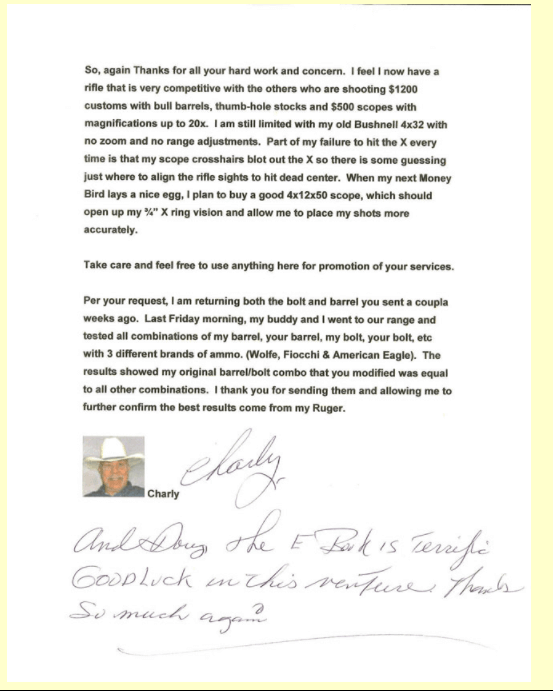 So, again Thanks for all your hard work and concern.  I feel I now have a
rifle that is very competitive with the others who are shooting $1200
customs with bull barrels, thumb-hole stocks and $500 scopes with
magnifications up to 20x.  I am still limited with my old Bushnell 4x32 with
no zoom and no range adjustments.  Part of my failure to hit the X every
time is that my scope crosshairs blot out the X so there is some guessing
just where to align the rifle sights to hit dead center.  When my next Money
Bird lays a nice egg, I plan to buy a good 4x12x50 scope, which should
open up my ¾" X ring vision and allow me to place my shots more
accurately.
Take care and feel free to use anything here for promotion of your services.
Per your request, I am returning both the bolt and barrel you sent a coupla
weeks ago.  Last Friday morning, my buddy and I went to our range and
tested all combinations of my barrel, your barrel, my bolt, your bolt, etc
with 3 different brands of ammo. (Wolfe, Fiocchi & American Eagle).  The
results showed my original barrel/bolt combo that you modified was equal
to all other combinations.  I thank you for sending them and allowing me to
further confirm the best results come from my Ruger.
Charly
Charly
And Doug, the E Book is Terrific
GOOD LUCK in this venture. Thanks
So much again